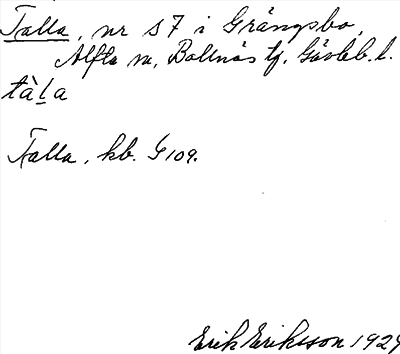 Talla, nr 57 i Grängsbo,
Alfta sn, Bollnäs tg, Gävleb. l.
tàḷa
Talla, kb. G 109.
Erik Eriksson 1929